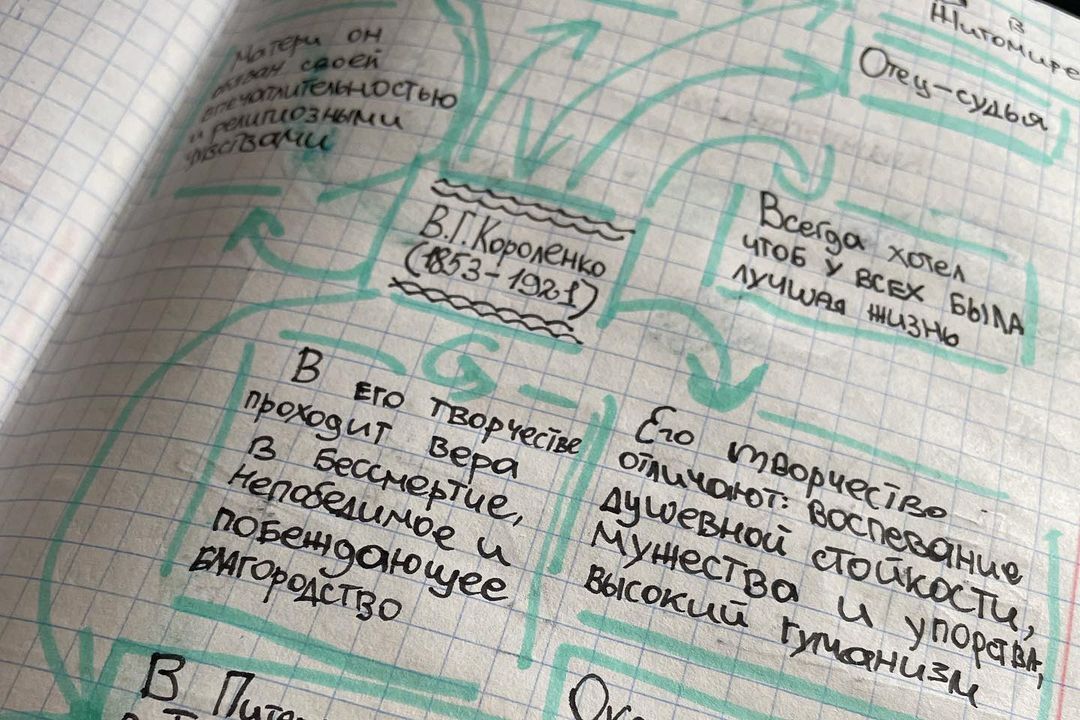 в
Житомире
Отец-судья
Матери он
обязан своей
впечатлительностью
и религиозными
чувствами
В.Г. Короленко
(1853-1921)
Всегда хотел
чтоб у всех была
лучшая жизнь
В его творчестве
проходит вера
в бессмертие,
непобедимое и
побеждающее
благородство
Его творчество
отличают: воспевание
душевной стойкости,
мужества и упорства,
высокий гуманизм
В